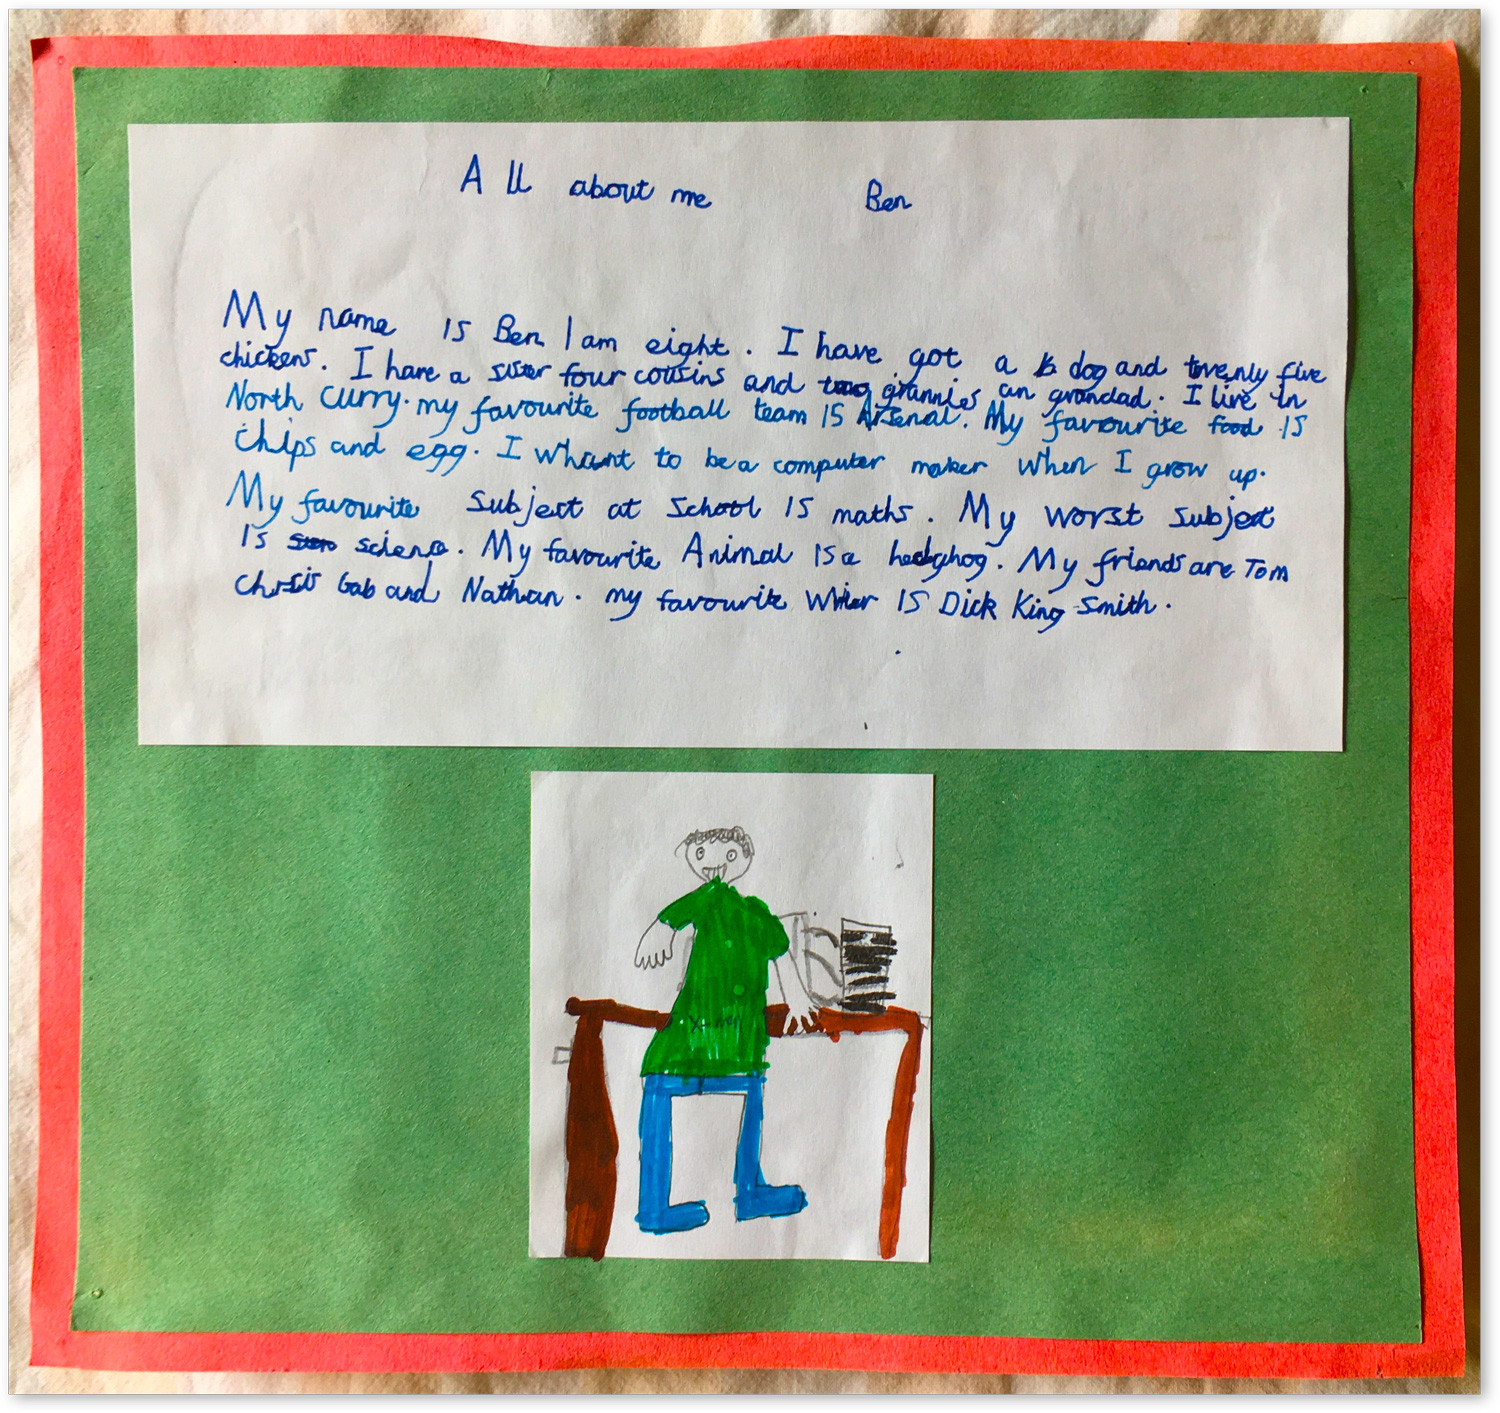 All about me Ben
My name is Ben I am eight. I have got a dog and twenly five
chickens. I have a sister four cousins and two grannies an grandad. I live in
North Curry. my favourite football team is Arsenal. My favourite food is
chips and egg. I whant to be a computer maker when I grow up.
My favourite subject at school is maths. My worst subject
is science. My favourite Animal is a hedghog. My friends are Tom
Chrsis Gab and Nathan. my favourite writer is Dick King-Smith.